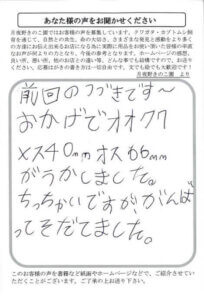 あなた様の声をお聞かせください
月夜野きのこ園ではお客様の声を募集しています。クワガタ・カブトムシ飼
育を通して、自然との共生、命の大切さ、さまざまな発見と感動をより多く
の方達にお伝え出来るお店になる為に実際に用品をお使い頂いた皆様の率直
なお声が何よりの力となり、今後の参考となります。ホームページの感想、
良い所、悪い所、他のお店との違い等、どんな事でも結構ですので、お送り
ください。応募はがきの書き方は一切自由です。文章でも絵でも大歓迎です！
月夜野きのこ園 より
前回のつづきです〜
おかげでオオクワ
メス40mmオス66mm
がうかしました。
ちっちゃいですが、がんば
ってそだてました。
このお客様の声を書籍など紙面やホームページなどで、ご紹介させてい
ただくことがございます。ご了承の上お送り下さい。